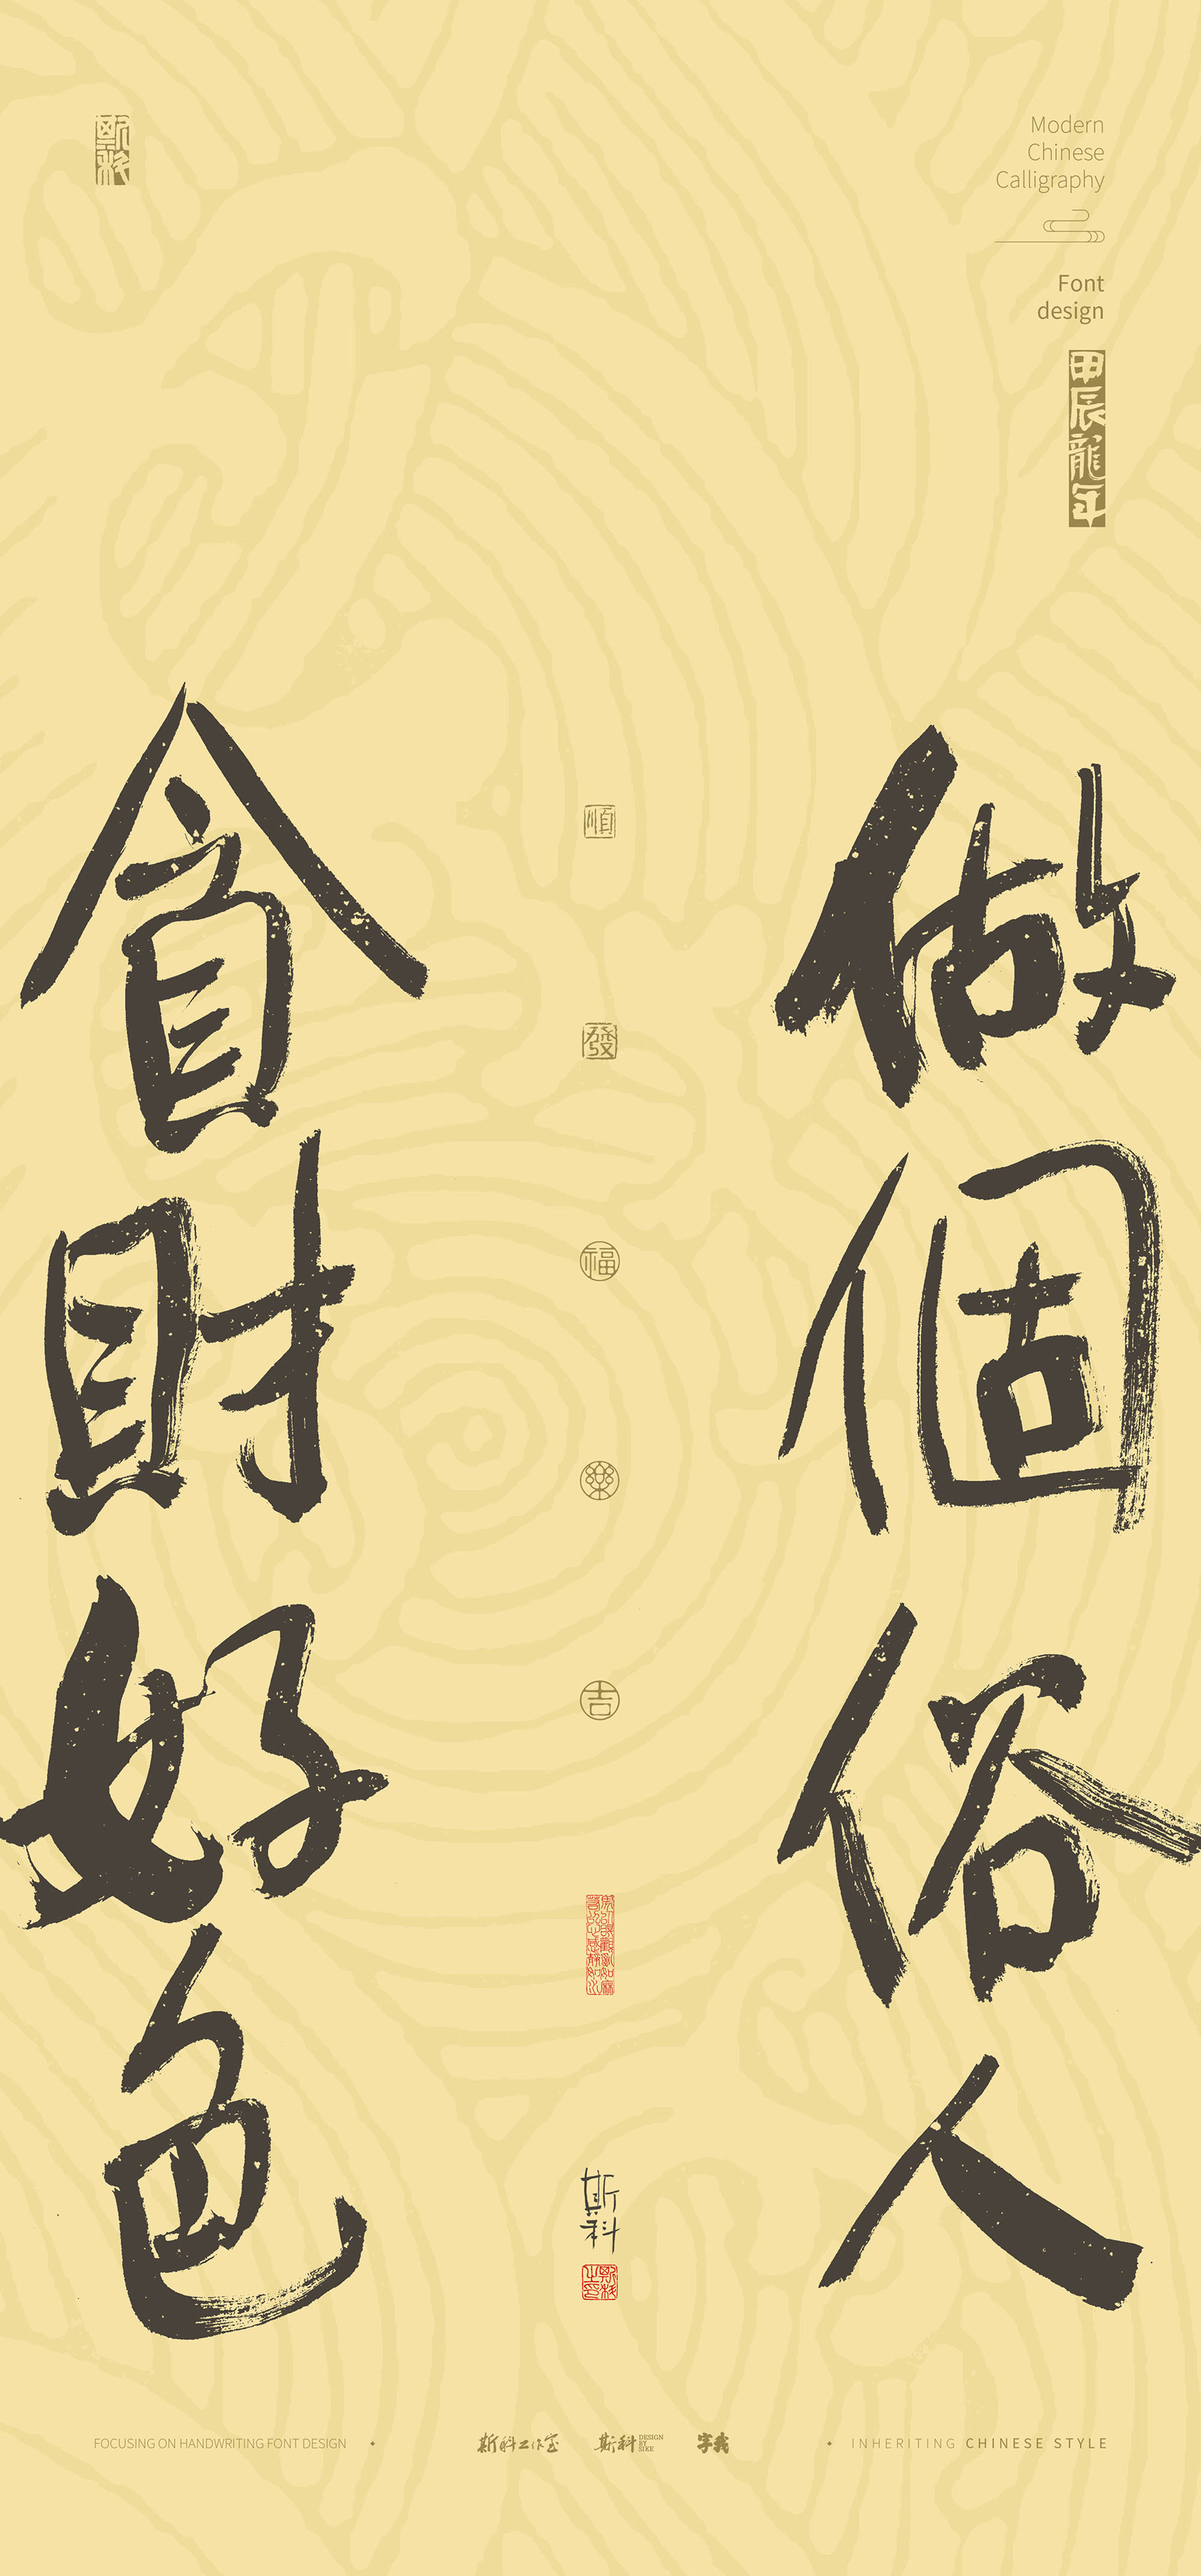 斯科
Modern
Chinese
Calligraphy
Font
design
甲辰龍年
做個俗人
貪財好色
順
發
福
樂
吉
斯科
斯科之印
FOCUSING ON HANDWRITING FONT DESIGN
斯科工作室
斯科
DESIGN
BY
SIKE
字我
INHERITING CHINESE STYLE